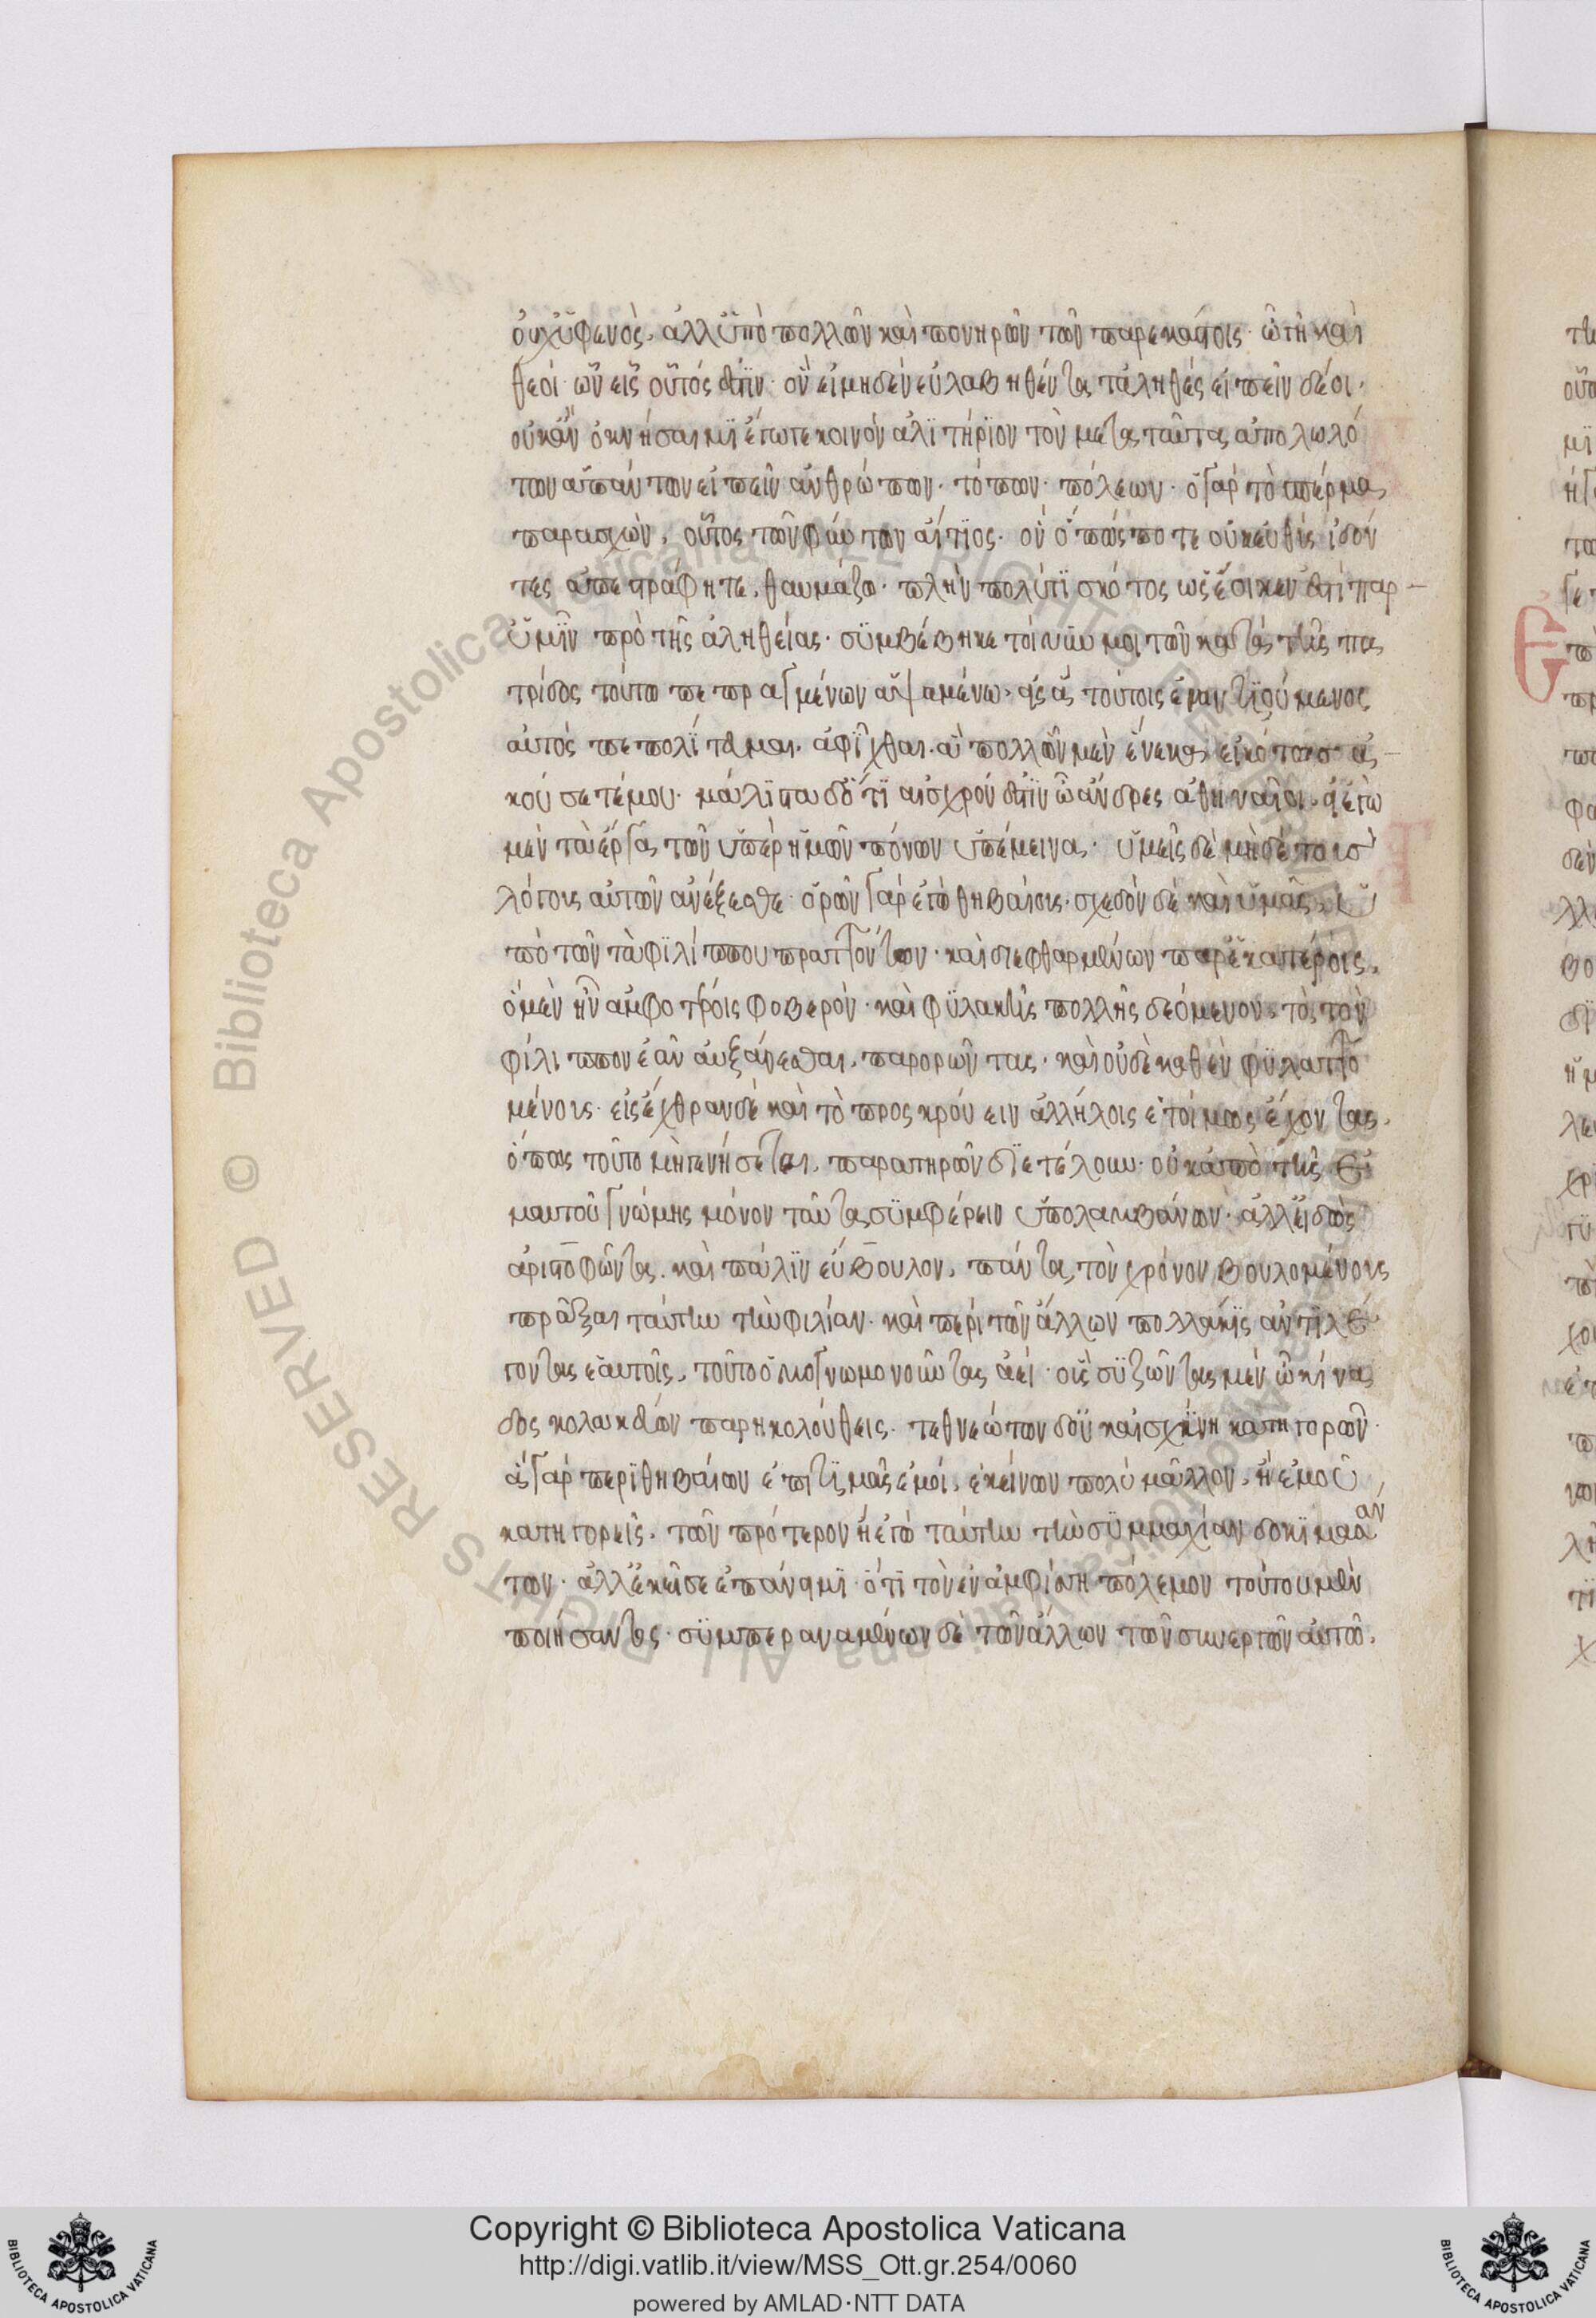 οὐχ ὑφ ενὸς, ἀλλ ὑπὸ πολλῶν καὶ πονηρῶν τῶν παρ εκάστοις· ὦ γῆ καὶ
θεοί· ὧν εἷς οὗτός ἐστιν· ὃν εἰ μηδὲν εὐλαβηθέντα τἀληθὲς εἰπεῖν δέοι·
οὐκ ἂν ὀκνήσαιμι ἔγωγε κοινὸν ἀλιτήριον τὸν μετα ταῦτα ἀπολωλό
των ἁπάντων εἰπεῖν ἀνθρώπων· τόπων· πόλεων· ὁ γὰρ τὸ σπέρμα
παρασχὼν, οὗτος τῶν φύντων αἴτιος· ὃν ὅπως ποτε οὐκ εὐθὺς ἰδόν
τες ἀπεστράφητε, θαυμάζω· πλὴν πολύ τι σκότος ὡς ἔοικεν ἐστὶ παρ
ὑμῖν πρὸ τῆς ἀληθείας· συμβέβηκε τοίνυν μοι τῶν κατὰ τῆς πα
τρίδος τούτω πεπραγμένων ἁψαμένω, εἰς ἃ τούτοις ἐναντιούμενος
αὐτὸς πεπολίτευμαι, ἀφῖχθαι· ἃ πολλῶν μὲν ἕνεκα εἰκότως ἀ
κούσετέ μου· μάλιστα δ ότι αἰσχρόν ἐστιν ὦ ἄνδρες ἀθηναῖοι, εἰ ἐγὼ
μὲν τὰ ἔργα τῶν ὑπὲρ ἡμῶν πόνων ὑπέμεινα· ὑμεῖς δὲ μὴδὲ τοὺσ
λόγους αὐτῶν ἀνέξεσθε· ὁρῶν γὰρ ἐγὼ θηβαίους· σχεδὸν δὲ καὶ ὑμᾶς, ὑ
πὸ τῶν τὰ φιλίππου πραττόντων· καὶ διεφθαρμένων παρ ἑκατέροις,
ὃ μὲν ἦν ἀμφοτέροις φοβερὸν· καὶ φυλακῆς πολλῆς δεόμενον, τὸ τὸν
φίλιππον ἐᾶν αὐξάνεσθαι, παρορῶντας· καὶ οὐδὲ καθ ὲν φυλαττο
μένους· εἰς ἔχθραν δὲ καὶ τὸ προσκρούειν ἀλλήλοις ἑτοίμως ἔχοντας,
ὅπως τοῦτο μὴ γενήσεται, παρατηρῶν διετέλουν· οὐκ ἀπὸ τῆς ἐ
μαυτοῦ γνώμης μόνον ταῦτα συμφέρειν ὑπολαμβάνων· ἀλλ εἰδὼς
ἀριστοφῶντα· καὶ πάλιν εύβουλον, πάντα τὸν χρόνον βουλομένους
πρᾶξαι ταύτην τὴν φιλίαν· καὶ περὶ τῶν ἄλλων πολλάκις ἀντιλέ
γοντας ἑαυτοῖς, τοῦτο ὁμογνωμονοῦντας ἀεί· οὓς σὺ ζῶντας μὲν ὦ κίνα
δος κολακεύων παρηκολούθεις· τεθνεώτων δ οὐκ αἰσχύνη κατηγορῶν·
ἃ γὰρ περὶ θηβαίων ἐπιτιμᾶς ἐμοί, ἐκείνων πολὺ μᾶλλον, ἢ ἐμοῦ
κατηγορεῖς· τῶν πρότερον ἢ ἐγὼ ταύτην τὴν συμμαχίαν δοκιμασάν
των· ἀλλ ἐκεῖσε ἐπάνειμι· ὅτι τὸν ἐν ἀμφίσση πόλεμον τούτου μὲν
ποιήσαντος· συμπεραναμένων δὲ τῶν ἄλλων τῶν συνεργῶν αὐτοῦ,
Copyright © Biblioteca Apostolica Vaticana
http://digi.vatlib.it/view/MSS_Ott.gr.254/0060
powered by AMLAD·NTT DATA